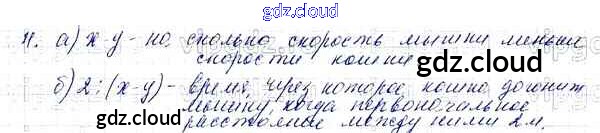 gdz.cloud
4. а) x-y - на сколько скорость мышки меньше
скорости кошки
gdz.cloud
б) 2:(x-y) - время, через которое кошка догонит
мышку, когда первоначальное
расстояние между ними 2м.
gdz.cloud